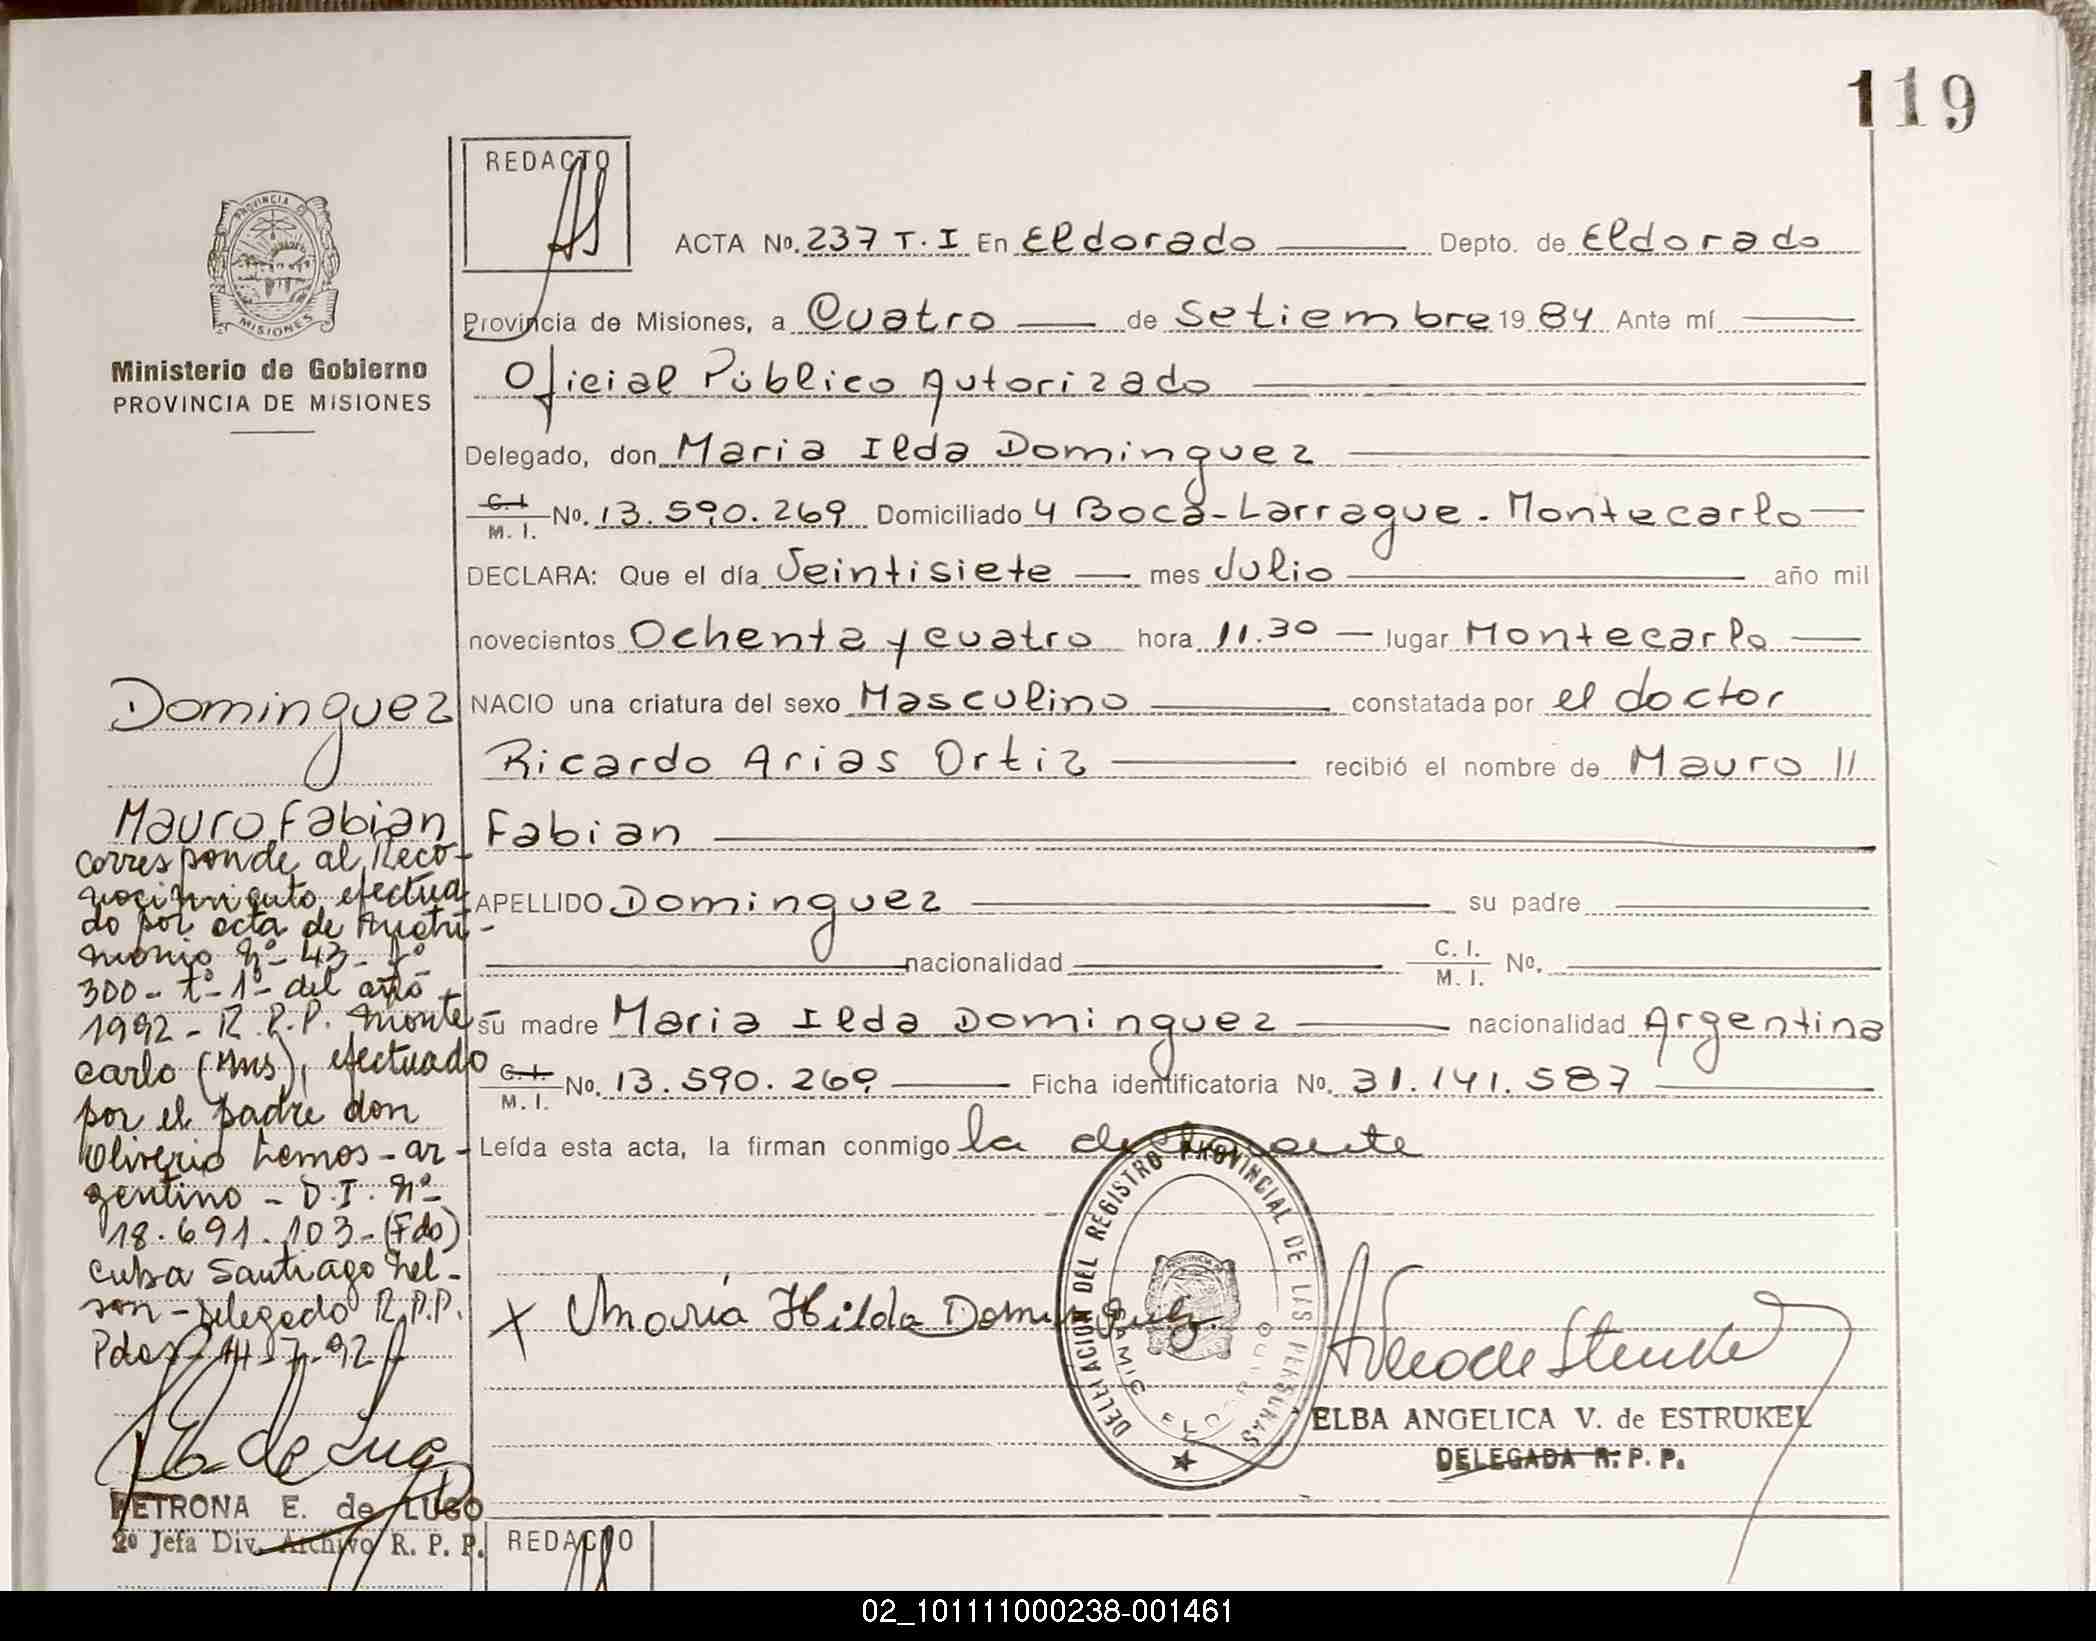 119
REDACTO
ACTA No. 237 T. I En Eldorado Depto. de Eldorado
Provincia de Misiones, a Cuatro de Setiembre 19 84 Ante mí
Oficial Público Autorizado
Delegado, don Maria Ilda Dominguez
C. I. / M. I. No. 13.590.269 Domiciliado 4 Boca-Larrague. Montecarlo
DECLARA: Que el día Veintisiete mes Julio año mil
novecientos Ochenta y cuatro hora 11.30 lugar Montecarlo
NACIO una criatura del sexo Masculino constatada por el doctor
Ricardo Arias Ortiz recibió el nombre de Mauro //
Fabian
APELLIDO Dominguez su padre
nacionalidad C. I. / M. I. No.
su madre Maria Ilda Dominguez nacionalidad Argentina
C. I. / M. I. No. 13.590.269 Ficha identificatoria No. 31.141.587
Leída esta acta, la firman conmigo la declarante
X María Hilda Dominguez
DELEGACION DEL REGISTRO PROVINCIAL DE LAS PERSONAS
PROVINCIA
ELBA ANGELICA V. de ESTRUKEL
DELEGADA R. P. P.
REDACTO
PROVINCIA DE
MISIONES
Ministerio de Gobierno
PROVINCIA DE MISIONES
Dominguez
Mauro Fabian
corresponde al Reco-
nocimiento efectua
do por acta de matri-
monio Nº- 43- fº
300- tº-1º- del año
1992- R.P.P. Monte-
carlo (Mns), efectuado
por el padre don
Oliverio Lemos- ar-
gentino - D.I. Nº-
18.691.103-(Fdo)
Cuba Santiago Nel-
son-Delegado R.P.P.
Pdas- 14-7-92
PETRONA E. de LUGO
2º Jefa Div. Archivo R. P. P.
02_101111000238-001461